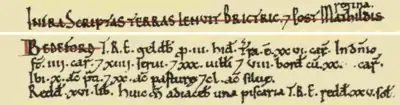 regina.
Infra Scriptas terras tenuit Brictric, 7 post Mathildis
Bedeford T.R.E. geldb' p .iii. hid'. Tra .ē. xxvi. car'. In dñio
st .iiii. car'. 7 xiiii. serui. 7 xxx. uilli 7 viii. bord' cū .xx. car'.
Ibi .x. ac p̃ti. 7 xx. ac pasturę 7 cl. ac siluę.
Redd' .xvi. lib'. Huic m̃ adiaceb' una piscaria T.R.E. redd' xxv. sol'.